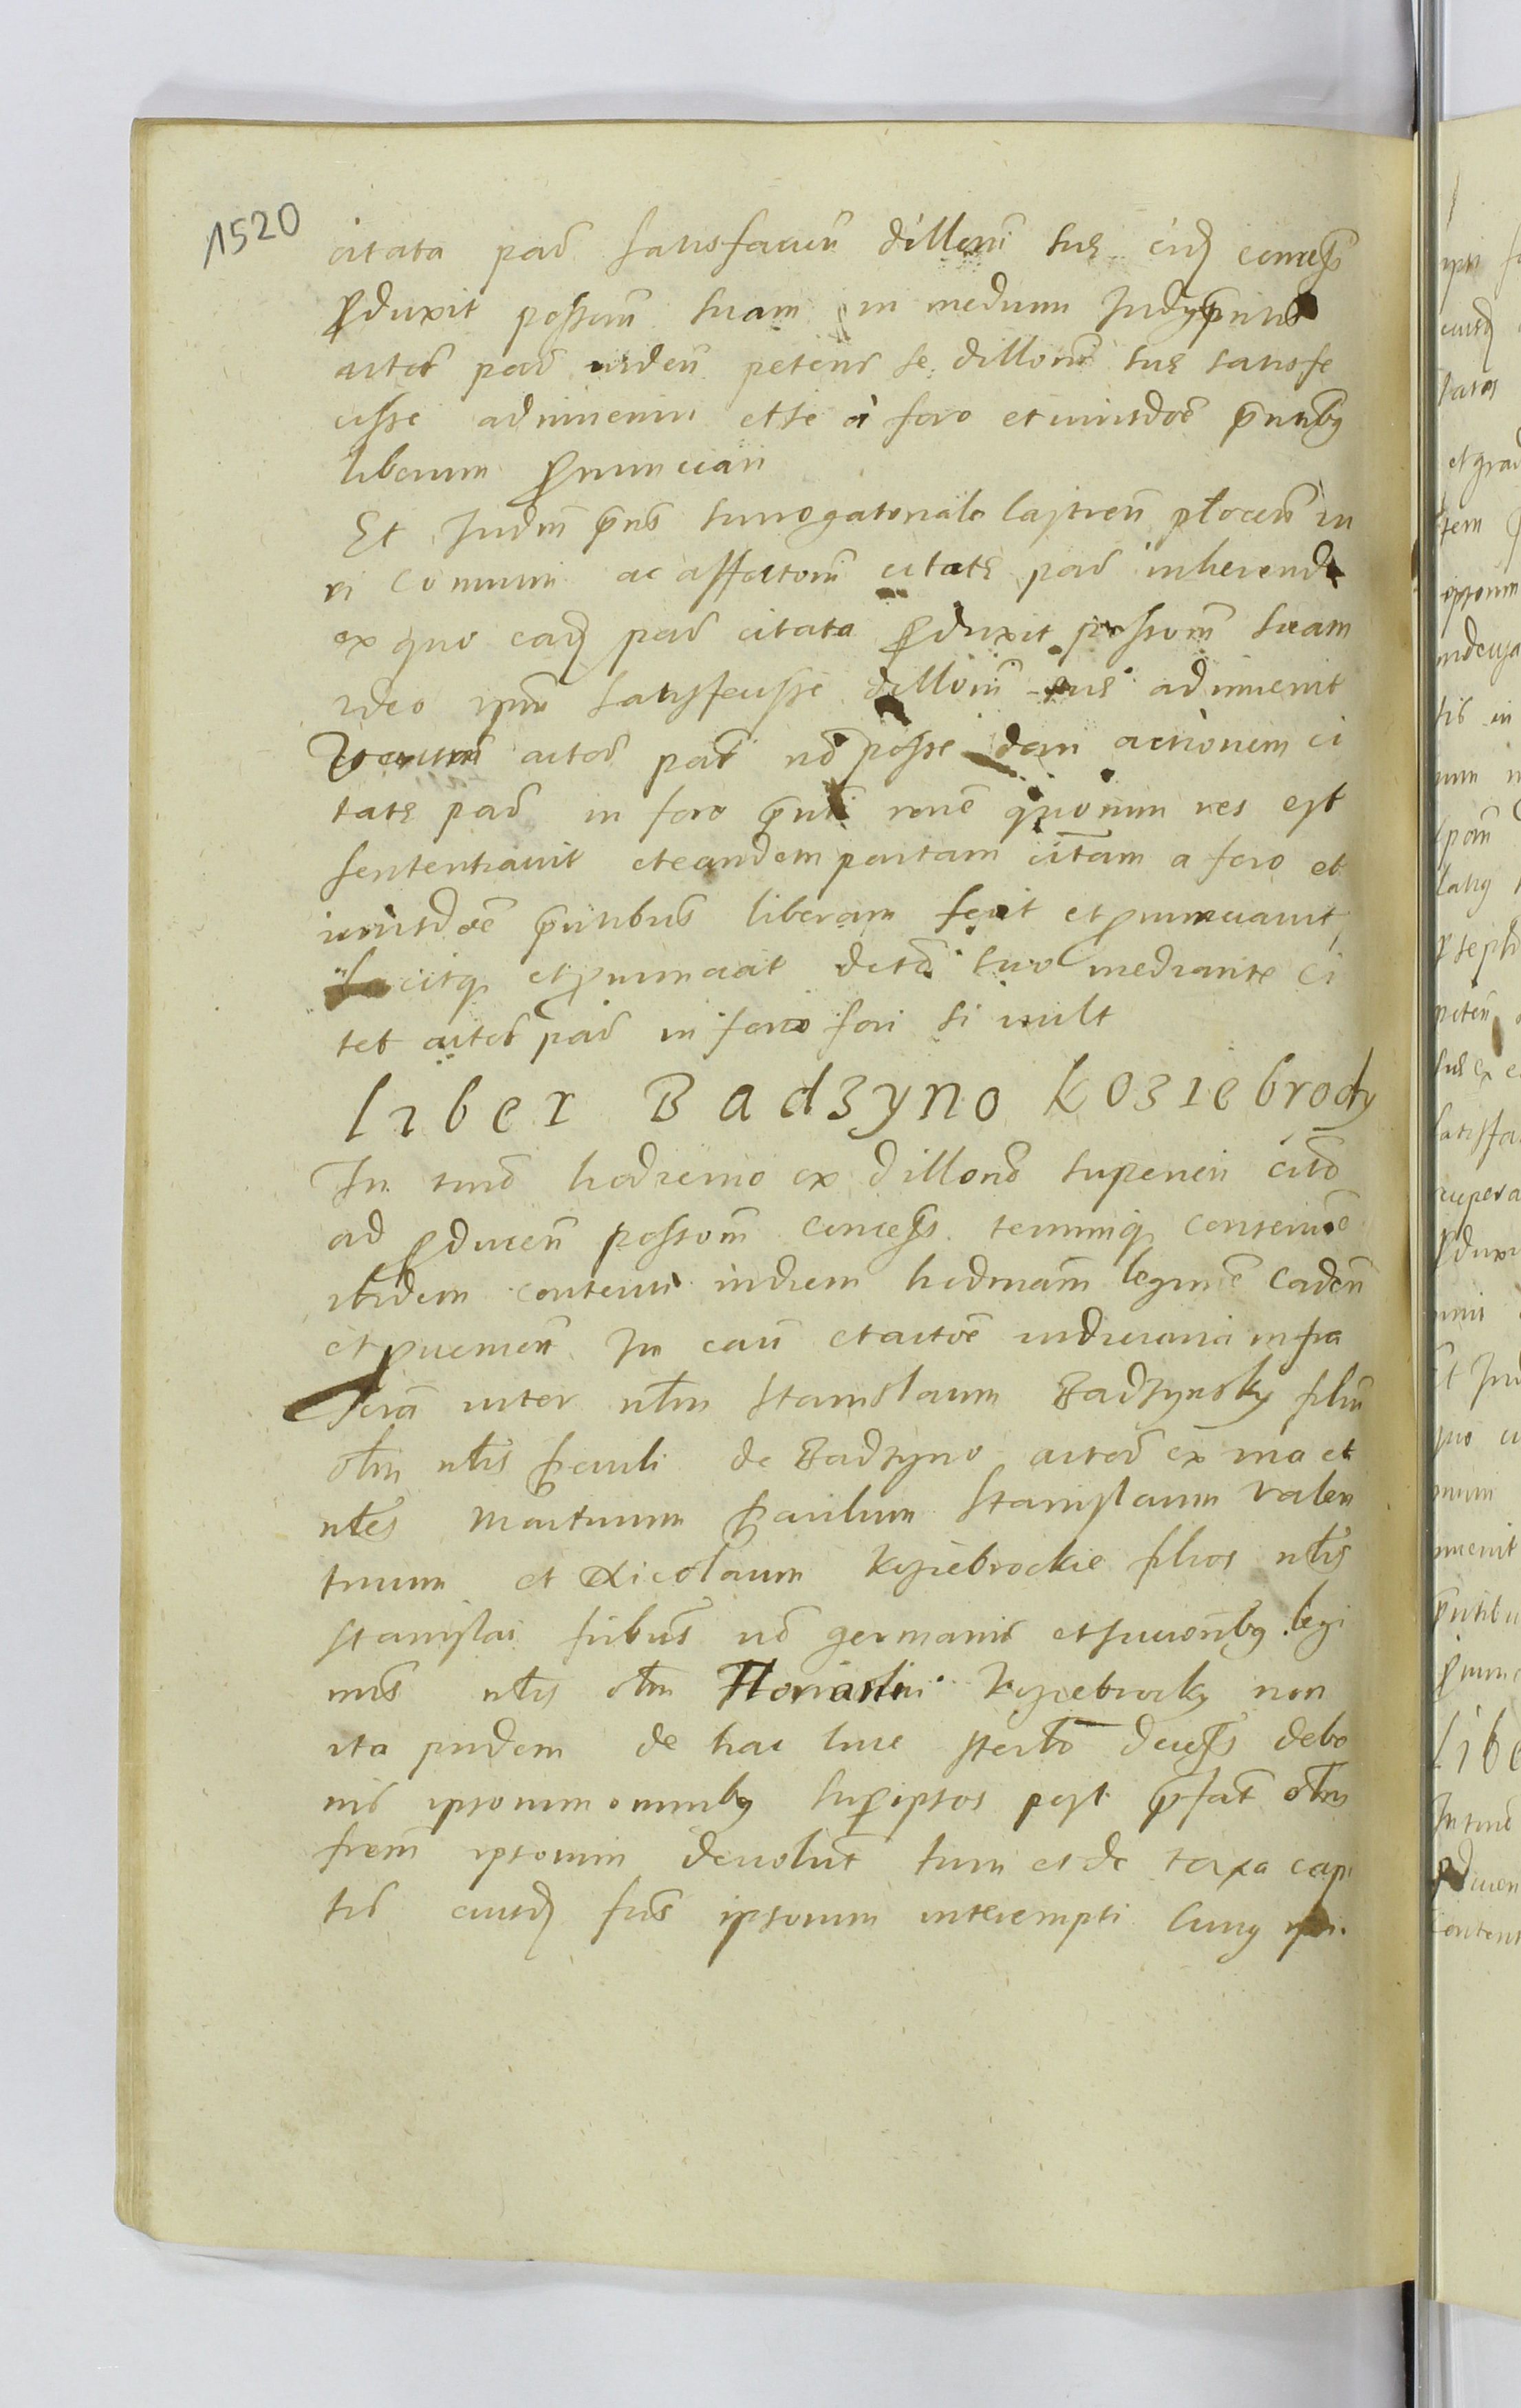 1520
citata pars satisfacien dilloni sue eid concess
produxit possom suam in medium Judy pntis
actor pars ibidem petens se dilloni sue satisfe
cisse adinveniri et se a foro et iurisdoe pntibus
liberum pronunciari
Et Judm pns surrogatoriale castren plocen iu
ri comuni ac assertoni citate pars inherendo
ex quo ead pars citata produxit possom suam
ideo ipm satisfecisse dilloni sue adinvenit
actor pars no posse dari actionem ci
tate pars in foro pnti rone quorum res est
sententiavit et eandem partam citam a foro et
iurisdoe pntibus liberam fecit et pronunciavit
facitq et pronunciat decto suo mediante Ci
tet actor pars in foro fori si vult
liber Badzyno Koziebrody
In tmo hodierno ex dillono superiori cito
ad producen possom concess terminiq conservoe
ibidem contenti in diem hodiernam legitime caden
et provenien In cau et actoe iudiciaria infra
scra inter nlem Stanislaum Badzynsky filiu
olim nlis Pauli de Badzyno actore ex una et
nles Martinum Paulum Stanislaum Valen
tinum et Nicolaum Kyziebrockie filios nlis
Stanislai fribus no germanis et succonbus legi
mis nlis olim Floriani Kyziebrocky non
ita pridem de hac luce sterto decess de bo
nis ipsorum omnibus super ipsos post pfat olim
frem ipsorum devolut tum et de taxa capi
tis eiusd fris ipsorum interempti Cuius